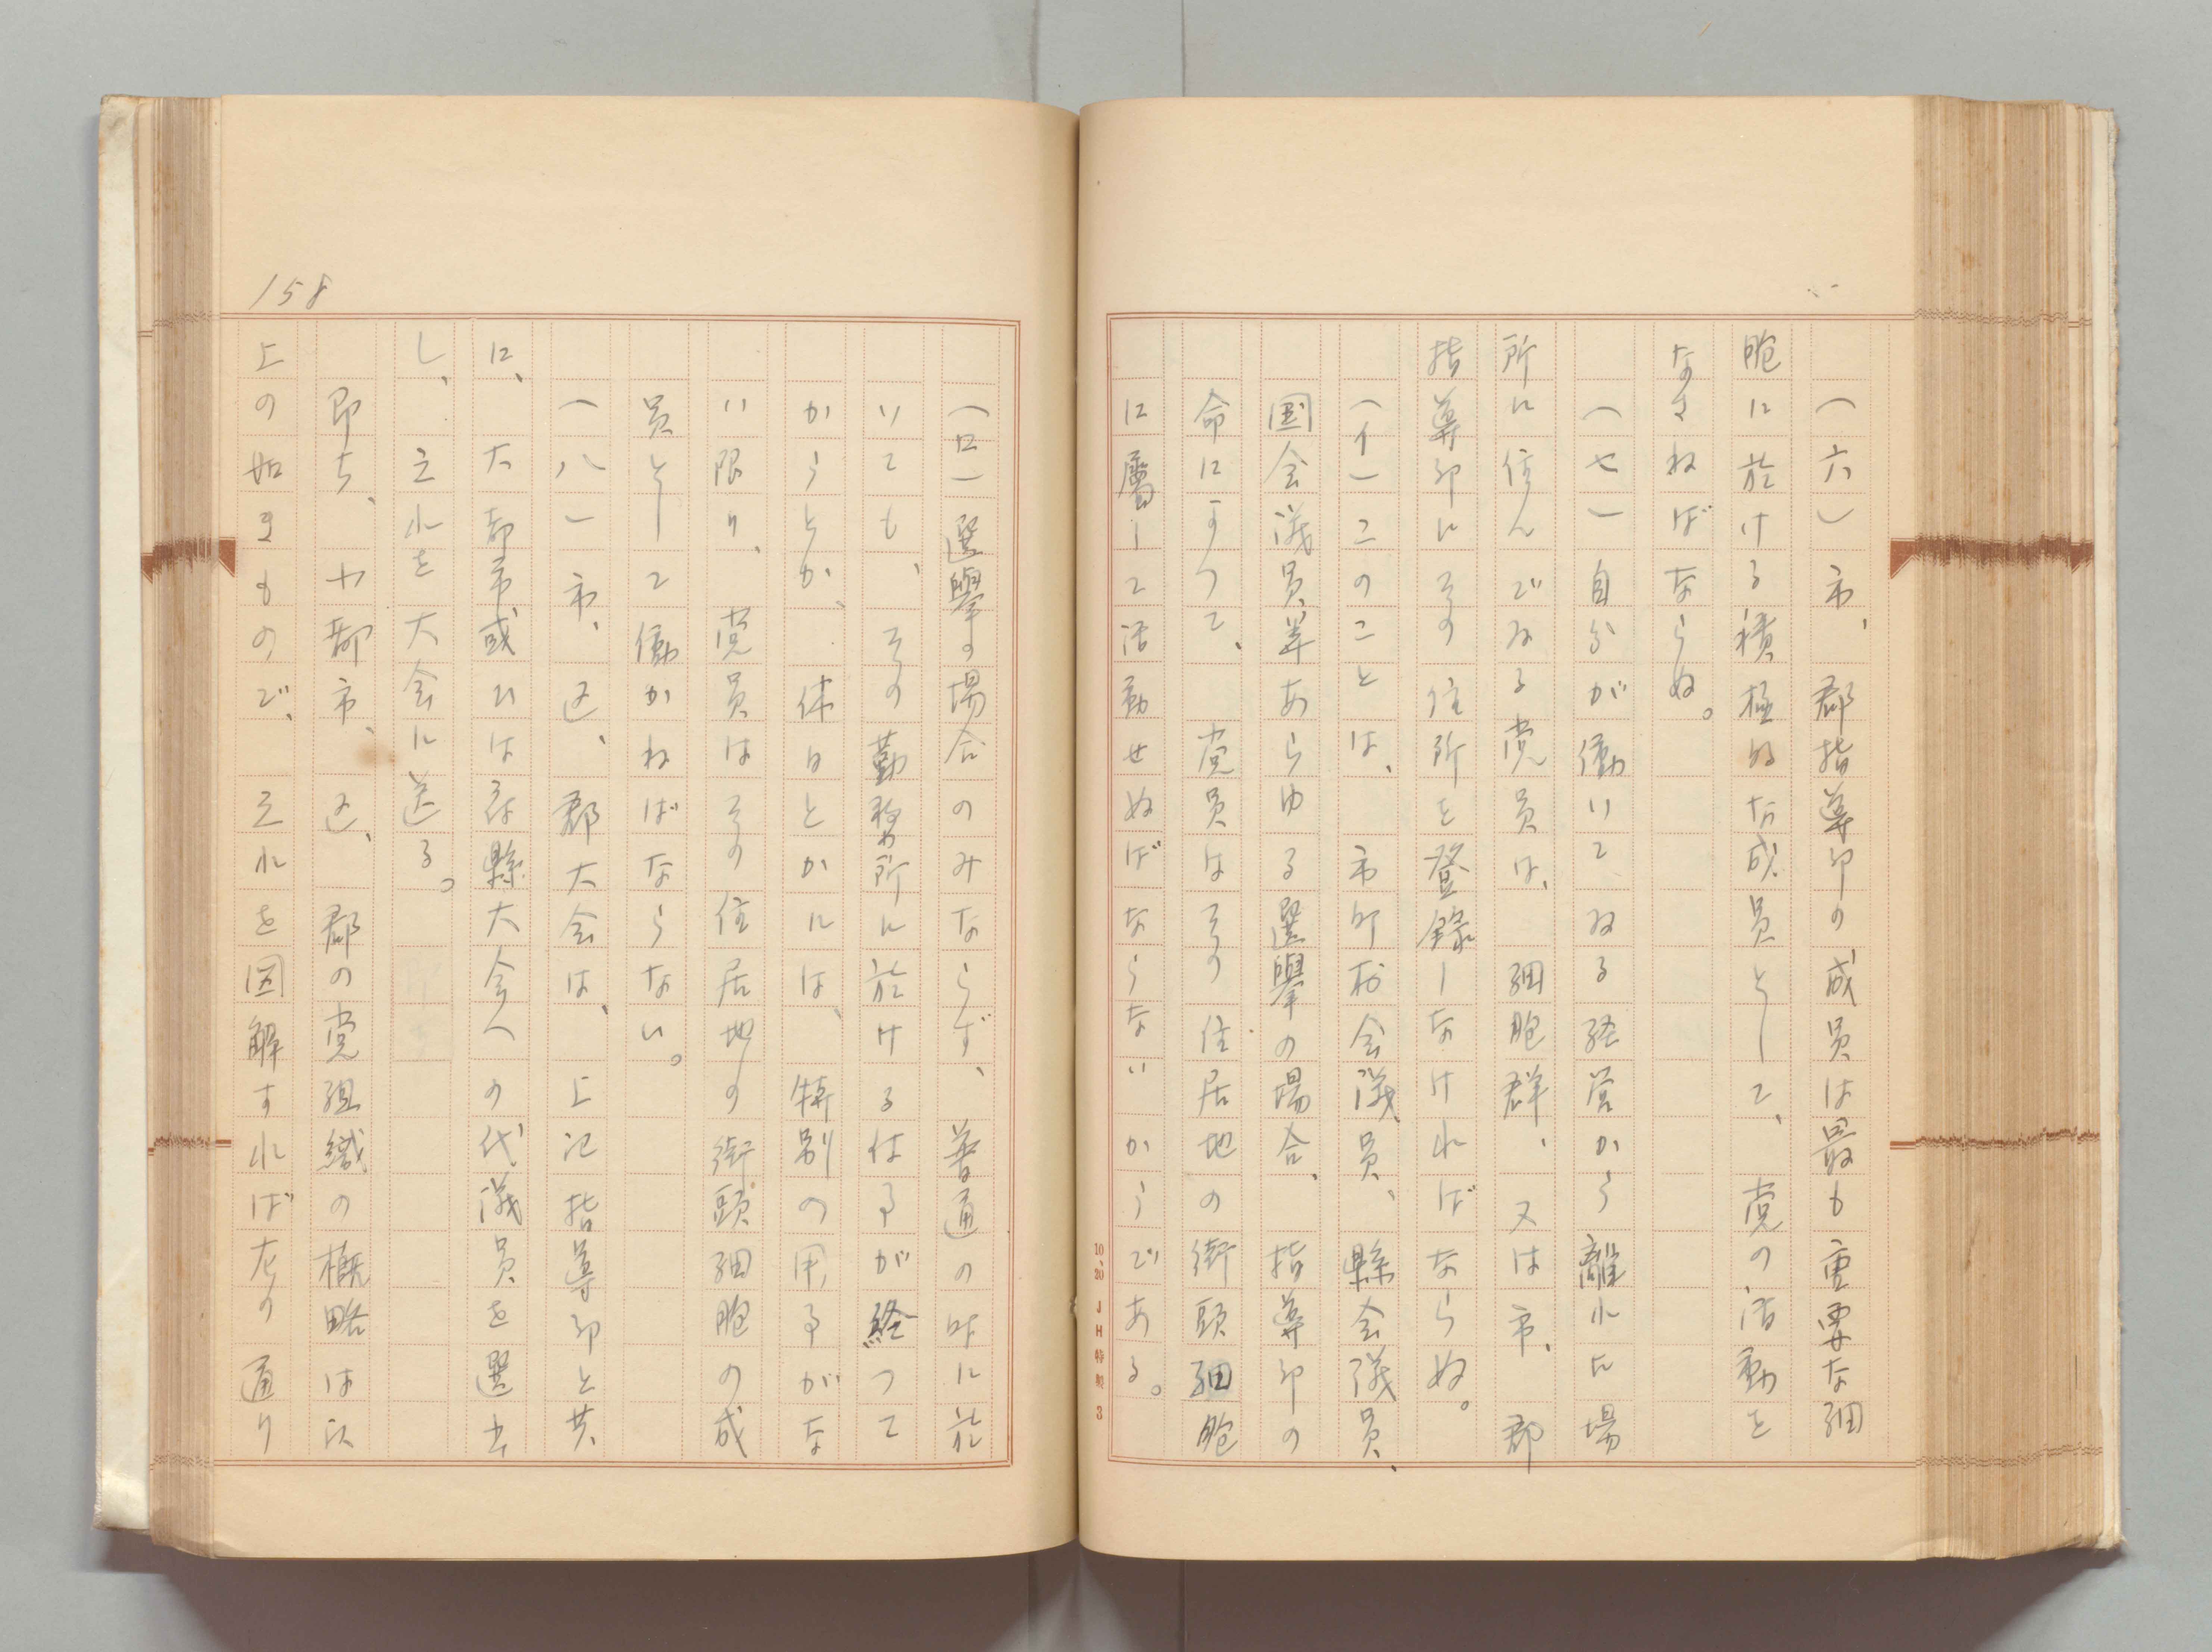 (六)市、郡指導部の成員は最も重要な細
胞に於ける積極的な成員として、党の活動を
なさねばならぬ。
(七)自分が働いてゐる経営から離れた場
所に住んでゐる党員は、細胞群、又は市、郡
指導部にその住所を登録しなければならぬ。
(イ)このことは、市町村会議員、縣会議員、
国会議員等あらゆる選擧の場合、指導部の
命によつて、党員はその住居地の街頭細胞
に屬して活動せぬばならないからである。
10.20 JH特製 3
(ロ)選擧の場合のみならず、普通の時に於
いても、その勤務所に於ける仕事が終つて
からとか、休日とかには、特別の用事がな
い限り、党員はその住居地の街頭細胞の成
員として働かねばならない。
(八)市、区、郡大会は、上記指導部と共
に、大都市或ひは府縣大会への代議員を選出
し、之れを大会に送る。
即ち、小都市、区、郡の党組織の概略は以
上の如きもので、之れを図解すれば左の通り
158